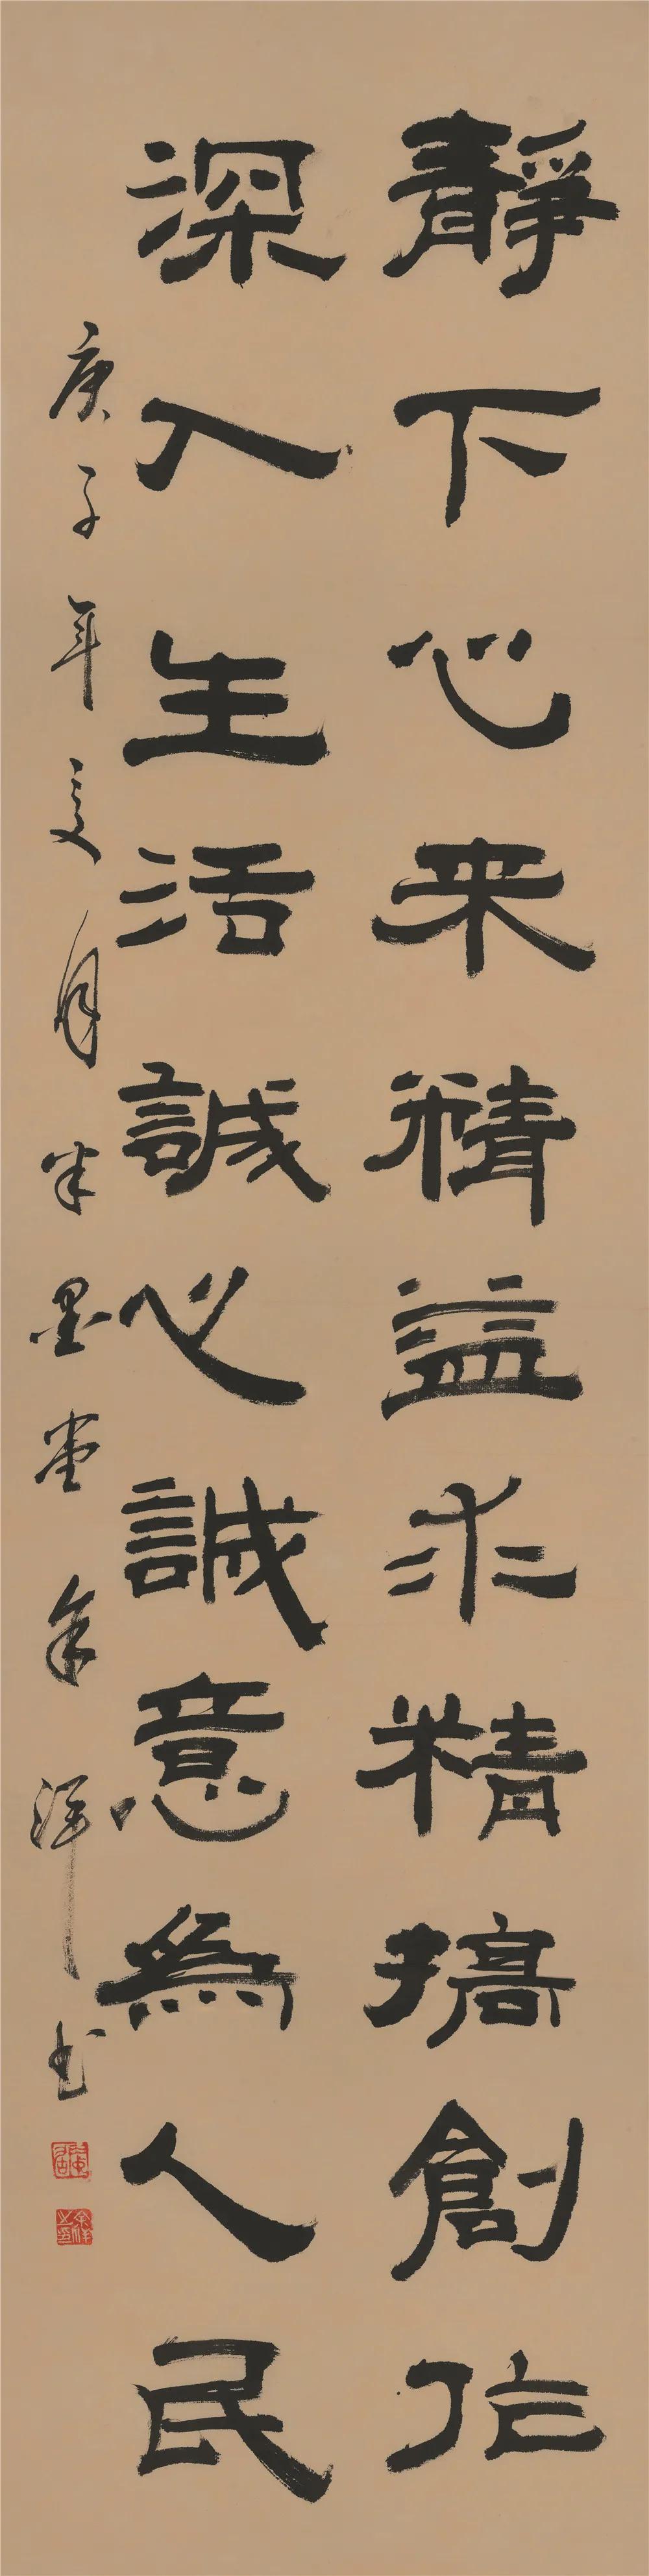 靜下心来精益求精搞創作
深入生活誠心誠意為人民
庚子年夏月半墨堂余洋书